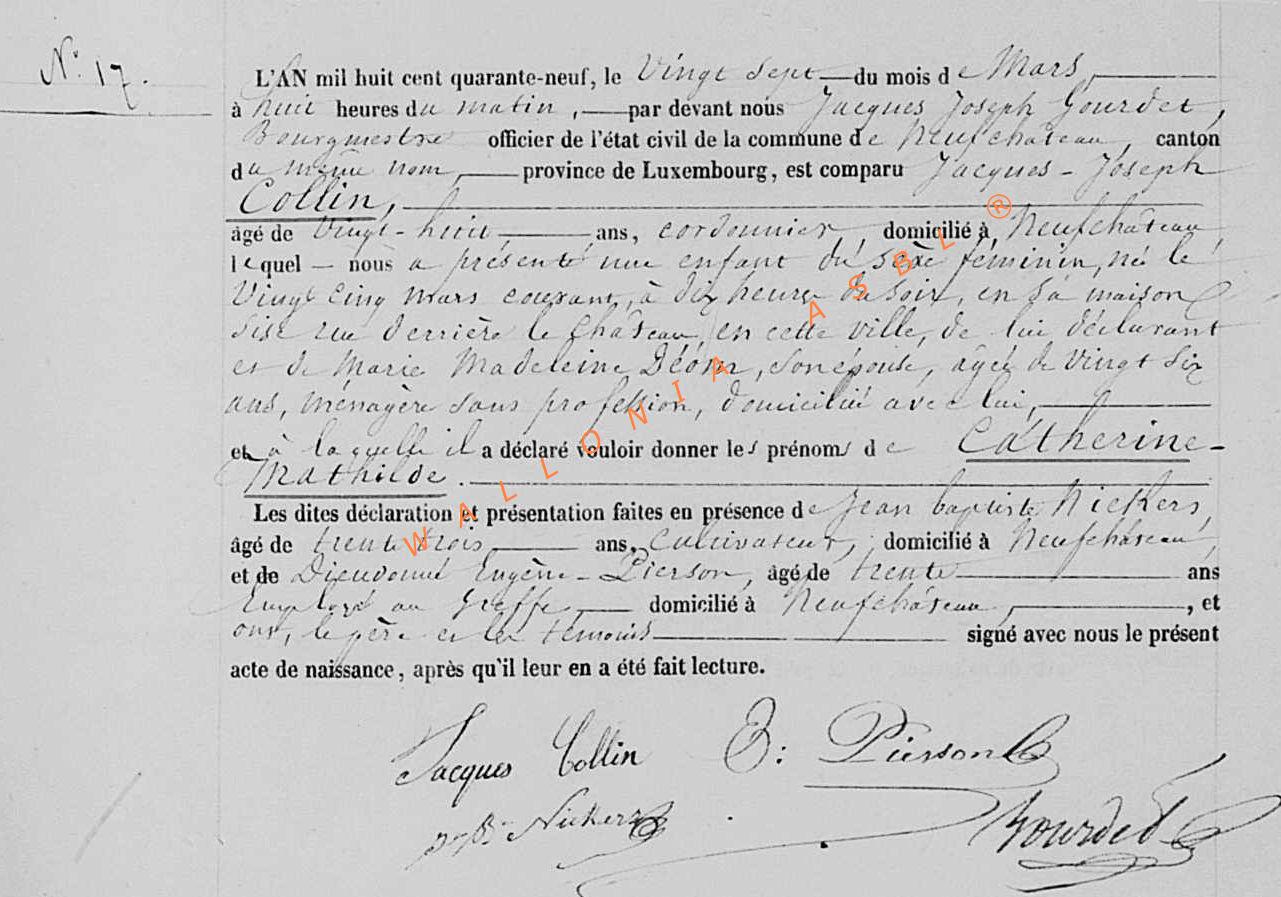 N.° 17.
L'AN mil huit cent quarante-neuf, le Vingt Sept — du mois de Mars,
à huit heures du matin, — par devant nous Jacques Joseph Gourdet,
Bourgmestre officier de l'état civil de la commune de Neufchâteau, canton
du même nom, — province de Luxembourg, est comparu Jacques-Joseph
Collin,
âgé de Vingt-huit, — ans, cordonnier domicilié à Neufchâteau
lequel — nous a présenté une enfant du sexe féminin, né le
Vingt Cinq mars courant, à dix heures du soir, en sa maison
sise rue derrière le Château, en cette ville, de lui déclarant
et de Marie Madeleine Déom, son épouse, agée de Vingt Six
ans, ménagère sans profession, domiciliée avec lui,
et à laquelle il a déclaré vouloir donner les prénoms de Catherine-
Mathilde.
Les dites déclaration et présentation faites en présence de Jean baptiste Nickers,
âgé de trente trois, — ans, Cultivateur, domicilié à Neufchâteau,
et de Dieudonné Eugène-Pierson, âgé de trente — ans
Employé au Greffe, — domicilié à Neufchâteau, —, et
ont, le père et les témoins — signé avec nous le présent
acte de naissance, après qu'il leur en a été fait lecture.
Jacques Collin E: Pierson
Nickers Gourdet
WALLONIA ASBL ®